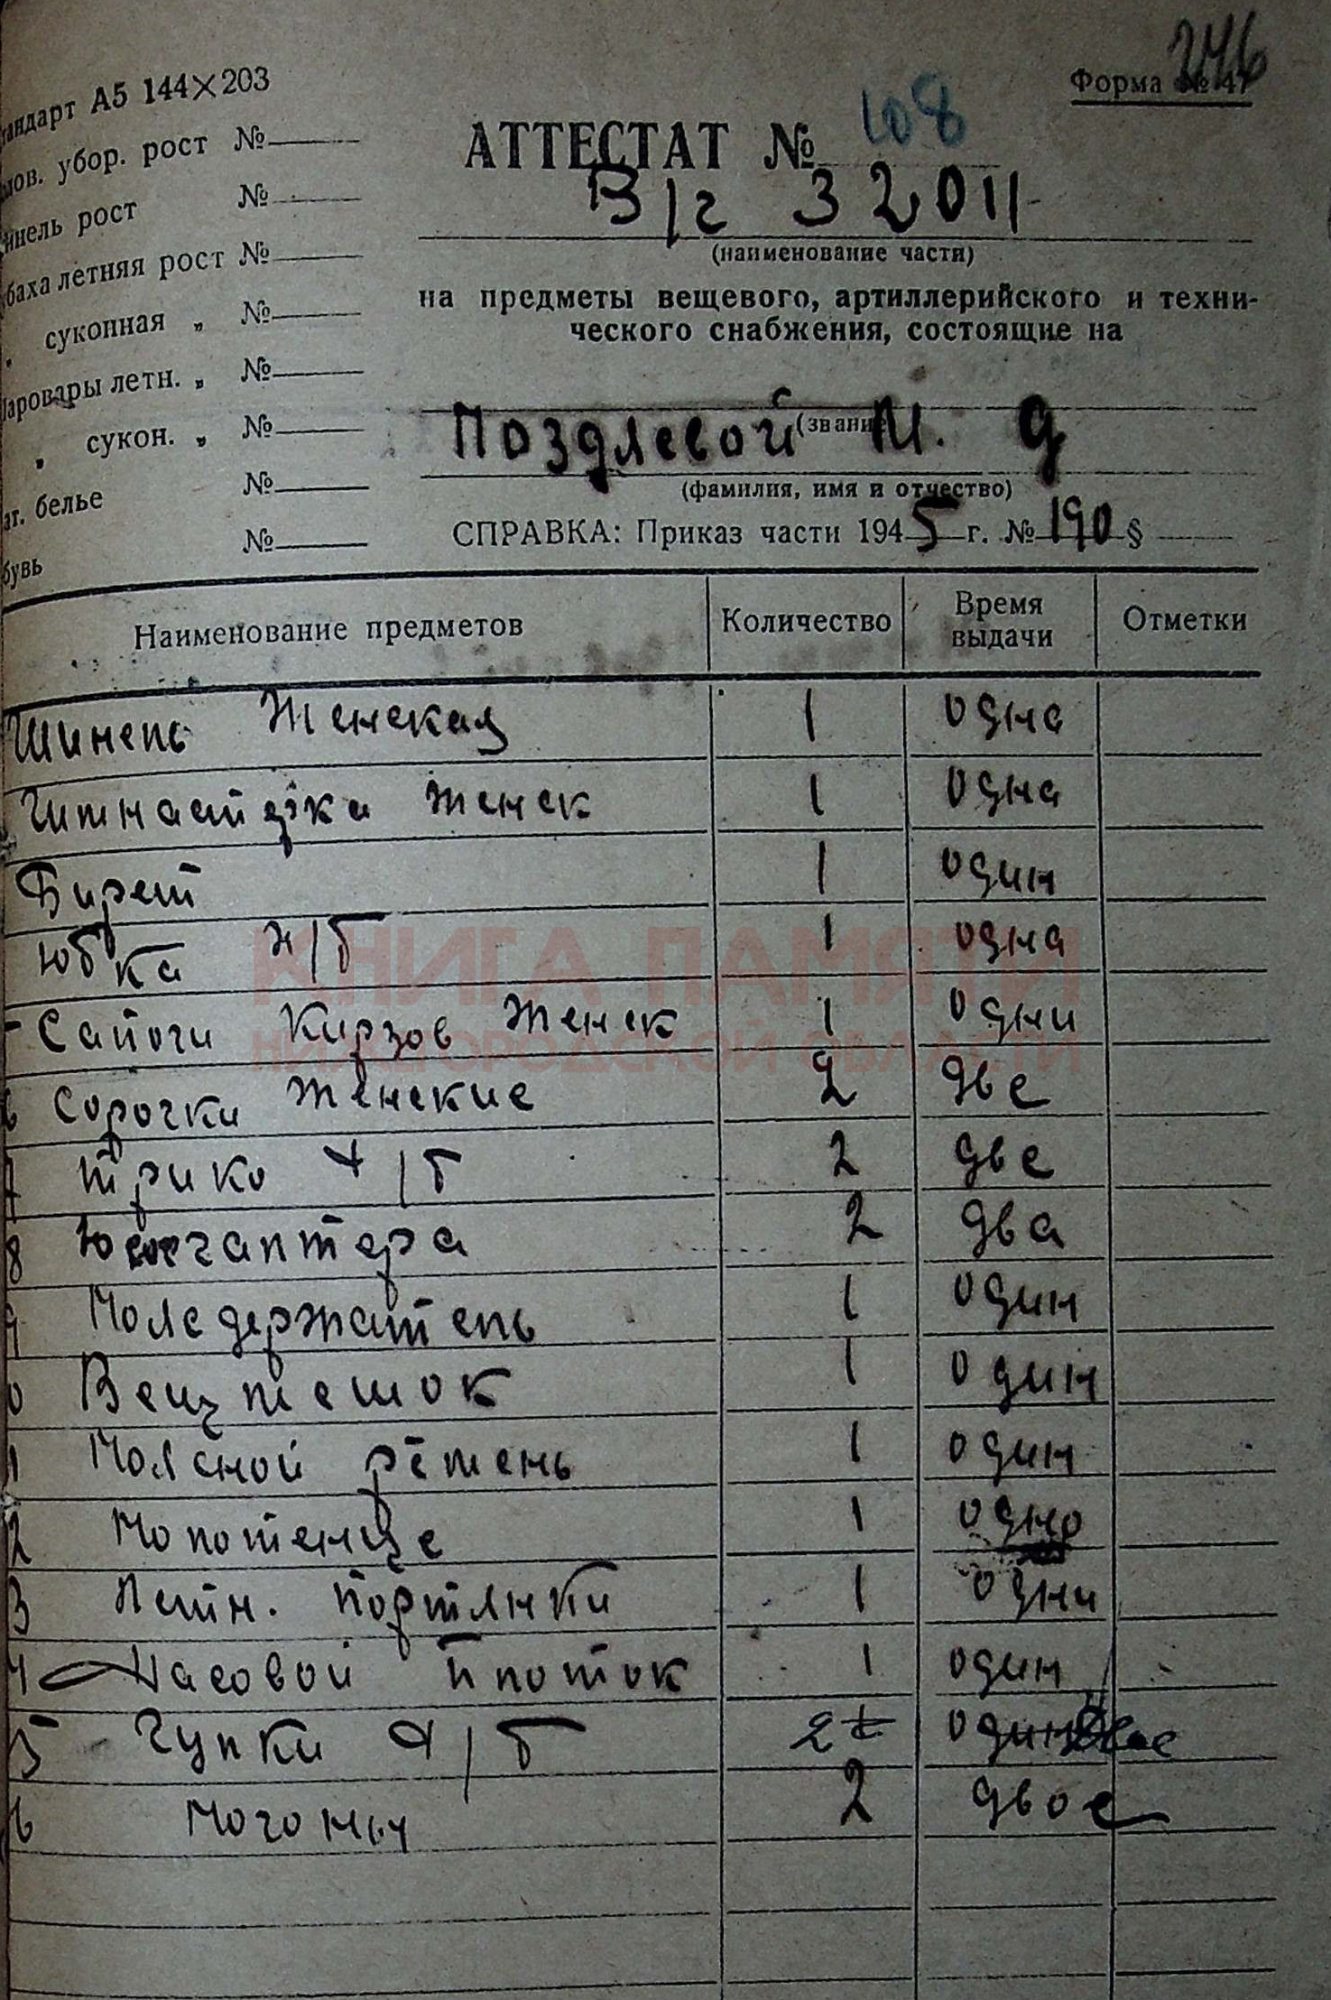 246
Форма № 47
тандарт А5 144×203
АТТЕСТАТ № 108
лов. убор. рост №
В/ч 32011
инель рост №
(наименование части)
баха летняя рост №
на предметы вещевого, артиллерийского и техни-
„ суконная „ №
ческого снабжения, состоящие на
аровары летн. „ №
(звание)
„ сукон. „ №
Поздяевой М. Д
(фамилия, имя и отчество)
ат. белье №
СПРАВКА: Приказ части 1945 г. № 190 §
бувь №
Наименование предметов Количество Время выдачи Отметки
Шинель Женская 1 одна
Гимнастёрка женск 1 одна
Бирет 1 один
Юбка х/б 1 одна
Сапоги Кирзов Женск 1 одни
6 Сорочки женские 2 две
7 трико х/б 2 две
8 2 два
9 1 один
0 Вещмешок 1 один
1 Поясной ремень 1 один
2 Полотенце 1 одно
3 Летн. портянки 1 одни
4 Насовой платок 1 один
5 Чулки х/б 2 двое
6 Погоны 2 двое
КНИГА ПАМЯТИ
НИЖЕГОРОДСКОЙ ОБЛАСТИ